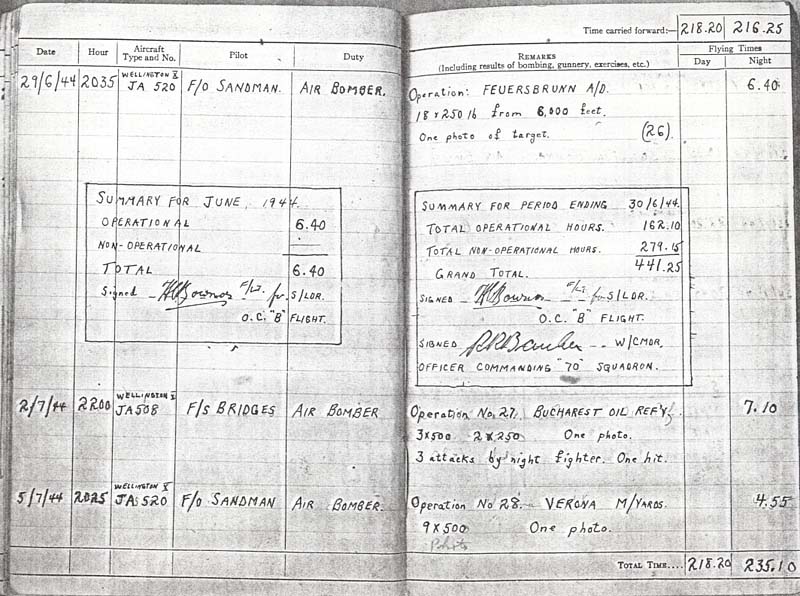 Time carried forward:— 218.20 216.25
Date Hour Aircraft Type and No. Pilot Duty
REMARKS (Including results of bombing, gunnery, exercises, etc.) Flying Times Day Night
29/6/44 2035 WELLINGTON X JA 520 F/O SANDMAN. AIR BOMBER.
Operation: FEUERSBRUNN A/D. 6.40
18 x 250 lb from 6,000 feet.
One photo of target. (26)
SUMMARY FOR JUNE, 1944
OPERATIONAL 6.40
NON-OPERATIONAL ——
TOTAL 6.40
Signed F/Lt. for S/LDR.
O.C. "B" FLIGHT.
SUMMARY FOR PERIOD ENDING 30/6/44.
TOTAL OPERATIONAL HOURS. 162.10
TOTAL NON-OPERATIONAL HOURS. 279.15
GRAND TOTAL. 441.25
SIGNED F/Lt. for S/LDR.
O.C. "B" FLIGHT.
SIGNED W/CMDR,
OFFICER COMMANDING "70" SQUADRON.
2/7/44 2200 WELLINGTON X JA508 F/S BRIDGES AIR BOMBER
Operation No. 27. BUCHAREST OIL REF'Y. 7.10
3x500 2x250 One photo.
3 attacks by night fighter. One hit.
5/7/44 2025 WELLINGTON X JA 520 F/O SANDMAN AIR BOMBER.
Operation No 28. VERONA M/YARDS. 4.55
9 x 500 One photo.
Photo
TOTAL TIME.... 218.20 235.10